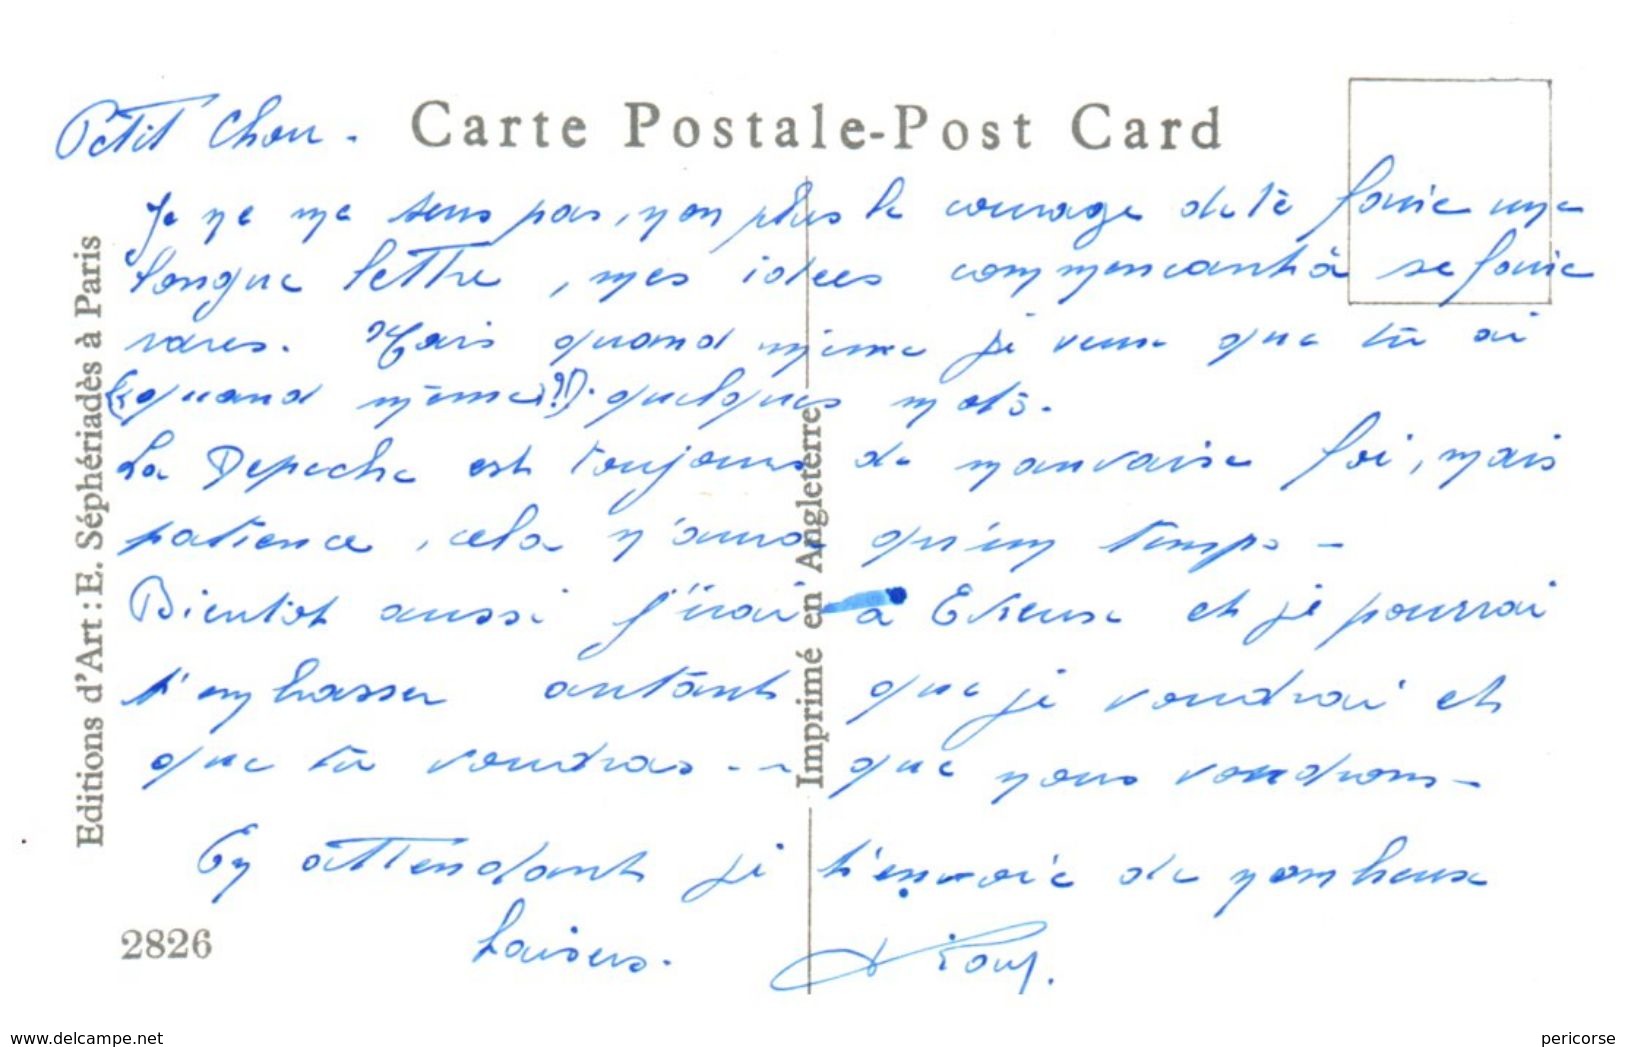 Carte Postale-Post Card
Petit Chou.
Je ne me sens pas, non plus le courage de te faire une
longue lettre, mes idées commencant à se faire
rares. Mais quand même je veux que tu ai
(quand même?!). quelques mots.
La Depeche est toujours de mauvaise foi, mais
patience, cela n'aura qu'un temps -
Bientot aussi j'irai à et je pourrai
t'embrasser autant que je voudrai et
que tu voudras -- que nous voudrons -
En attendant je t'envoie de nombreux
baisers.
Editions d'Art : E. Séphériadès à Paris
Imprimé en Angleterre
2826
www.delcampe.net
pericorse